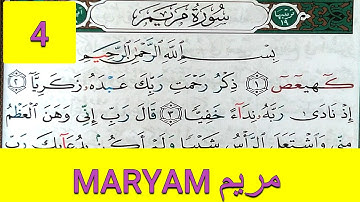 4
سُورَةُ مَرْيَمَ
ترتيبها ١٩
بِسْمِ اللَّهِ الرَّحْمَٰنِ الرَّحِيمِ
كٓهيعٓصٓ ١ ذِكْرُ رَحْمَتِ رَبِّكَ عَبْدَهُۥ زَكَرِيَّآ ٢
إِذْ نَادَىٰ رَبَّهُۥ نِدَآءً خَفِيًّا ٣ قَالَ رَبِّ إِنِّى وَهَنَ ٱلْعَظْمُ
مِنِّى وَٱشْتَعَلَ ٱلرَّأْسُ شَيْبًا وَلَمْ أَكُنۢ بِدُعَآئِكَ رَبِّ
MARYAM مريم